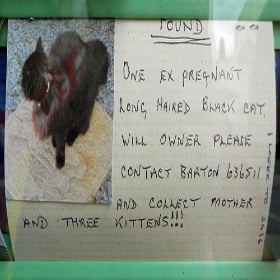 FOUND
ONE EX PREGNANT
LONG HAIRED BLACK CAT.
WILL OWNER PLEASE
CONTACT BARTON 636511
AND COLLECT MOTHER
AND THREE KITTENS!!!